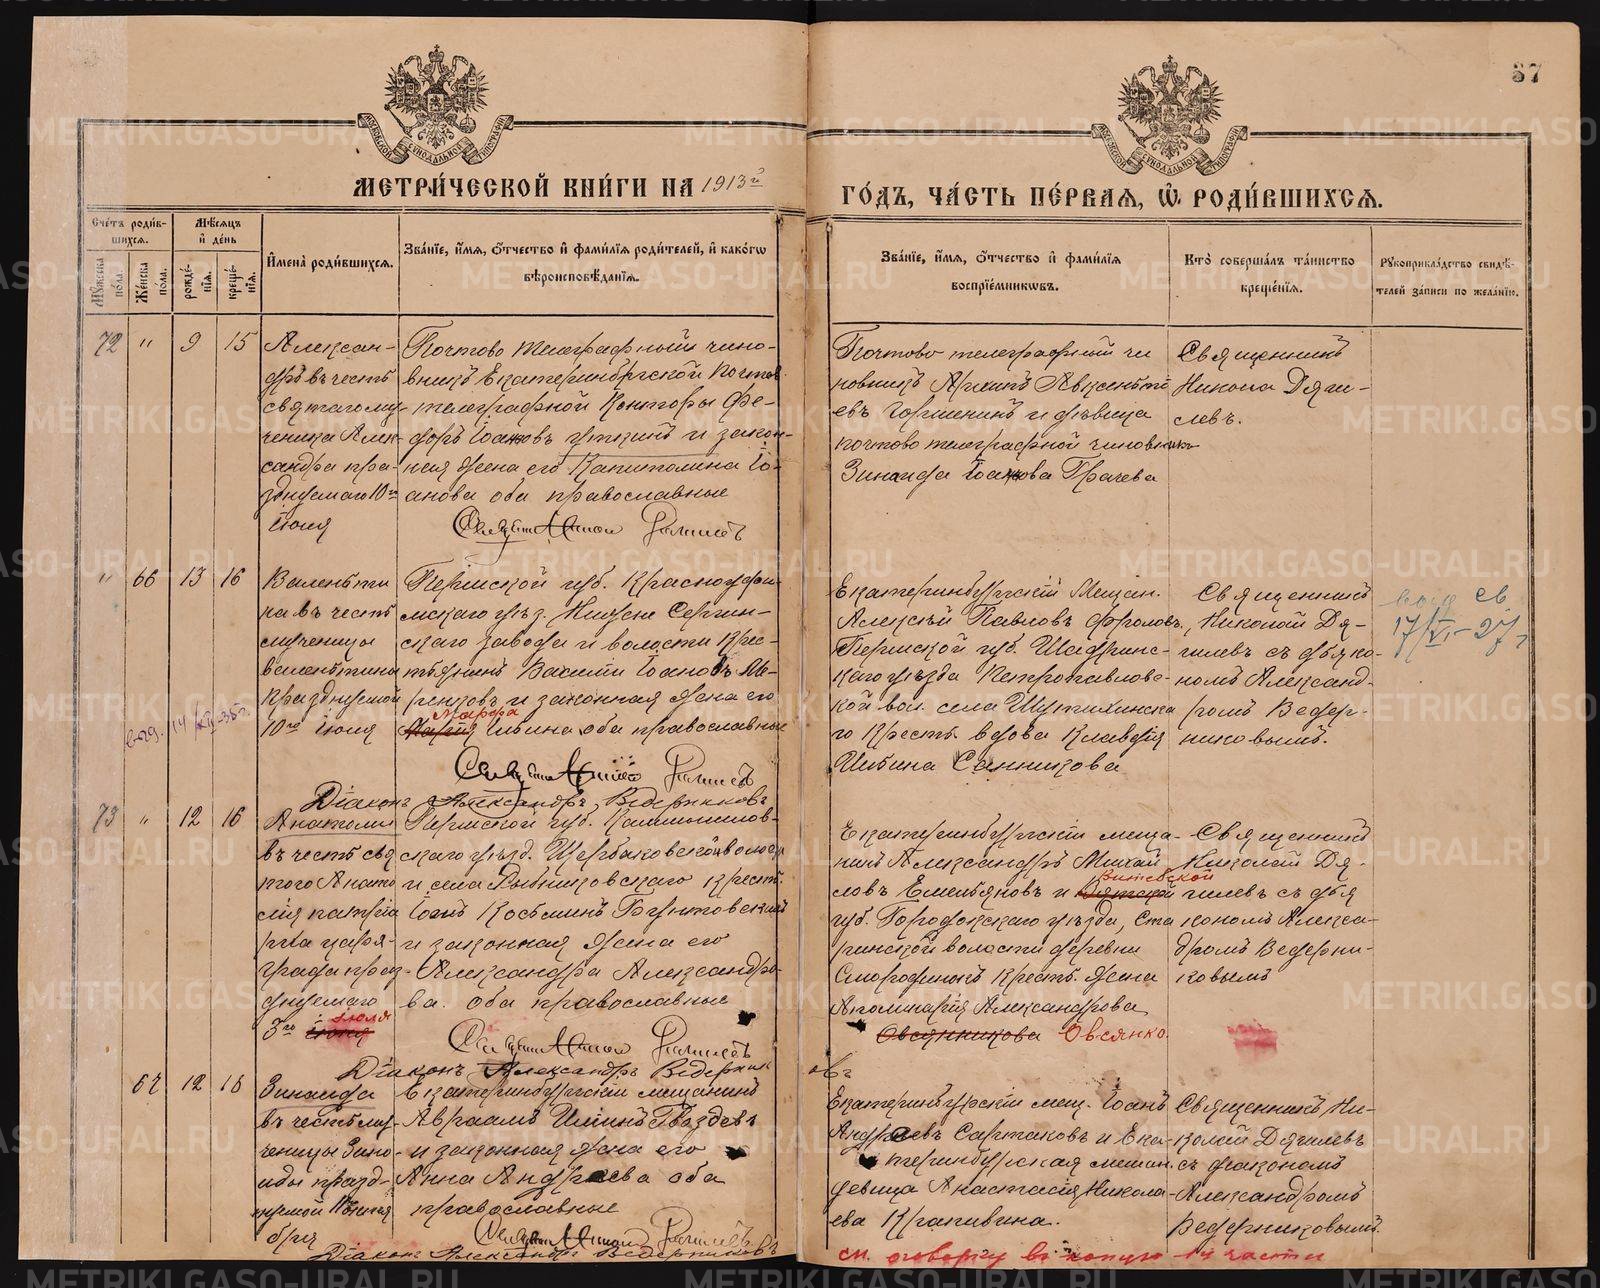 67
МЕТРИЧЕСКОЙ КНИГИ НА 1913й
ГОДЪ, ЧАСТЬ ПЕРВАЯ, Ѡ РОДИВШИХСЯ.
Счетъ родив-
шихся.
Мужеска пола.
Женска пола.
Мѣсяцъ и день
рождения.
крещения.
Имена родившихся.
Званіе, имя, отчество и фамилія родителей, и какогѡ
вѣроисповѣданія.
Званіе, имя, отчество и фамилія
воспріемникѡвъ.
Кто совершалъ таинство
крещенія.
Рукоприкладство свидѣ-
телей записи по желанію.
72 " 9 15
Алексан-
дръ въ честь
святаго му-
ченика Алек-
сандра пра-
зднуемаго 10го
Іюня
Почтово телеграфный чино-
вникъ Екатеринбргской почтов.
телеграфной Конторы Фе-
доръ Іоановъ Уткинъ и закон-
ная жена его Капитолина Іо-
анова оба православные
Почтово телеграфный чи
новникъ
Горшенинъ и дѣвица
почтово телеграфной чиновникъ
Зинаида Іоанова Грачева
Священникъ
Никола Дяги-
левъ.
" 66 13 16
Валенти
на въ честь
мученицы
Валентина
празднуемой
10го Іюня
Пермской губ. Красноуфи-
мскаго уѣз. Нижне Сергин-
скаго завода и волости крес-
тьянинъ Василій Іоановъ
и законная жена его
Марфа
Мария Ивина оба православные
Діаконъ Александръ Ведерниковъ
Екатеринбургскій Мещан.
Алексѣй Павловъ Фроловъ,
Пермской губ. Шадринс-
каго уѣзда Петропавловс-
кой вол. села Шутихинска
го Крест. вдова Клавдія
Ивина Санникова
Священникъ
Николай Дя-
гилевъ съ дьяко-
номъ Александ-
ромъ Ведер-
никовымъ.
17/VI-27
73 " 12 16
Анатолій
въ честь свя
того Анато
лія патріа
рха царя-
града праз-
днуемаго
3го Іюня
Іюля
Пермской губ. Камышлов-
скаго уѣзд. Щербаковской волост
и села Рыбниковскаго крест.
Іоанъ Косьминъ Бунтовскій
и законная жена его
Александра Александро-
ва. оба православные
Діаконъ Александръ Ведерник
овъ
Екатеринбургскій меща-
нинъ Александръ Михай
ловъ Емельяновъ и Вятской
Витебской
губ. Городокскаго уѣзда, Ста
ринской волости деревни
Смородникъ Крест. жена
Аполинарія Александрова
Овсянникова Овсянко.
Священникъ
Николай Дя-
гилевъ съ дья
кономъ Алекса-
дромъ Ведерни-
ковымъ
67 12 16
Зинаида
въ честь му-
ченицы Зина-
иды празд-
нуемой
Екатеринбургскій мещанинъ
Авраамъ Ильинъ Гвоздевъ
и законная жена его
Анна Андреева оба
православные
Діаконъ Александръ Ведерниковъ
Екатеринбургскій мещ. Іоанъ
Андреевъ Сартаковъ и Ека-
теринбургская мещан.
девица Анастасія Никола-
ева Крапивина.
Священникъ Ни-
колай Дягилевъ
съ діакономъ
Александромъ
Ведерниковымъ.
см. оговорку въ концѣ части
METRIKI.GASO-URAL.RU